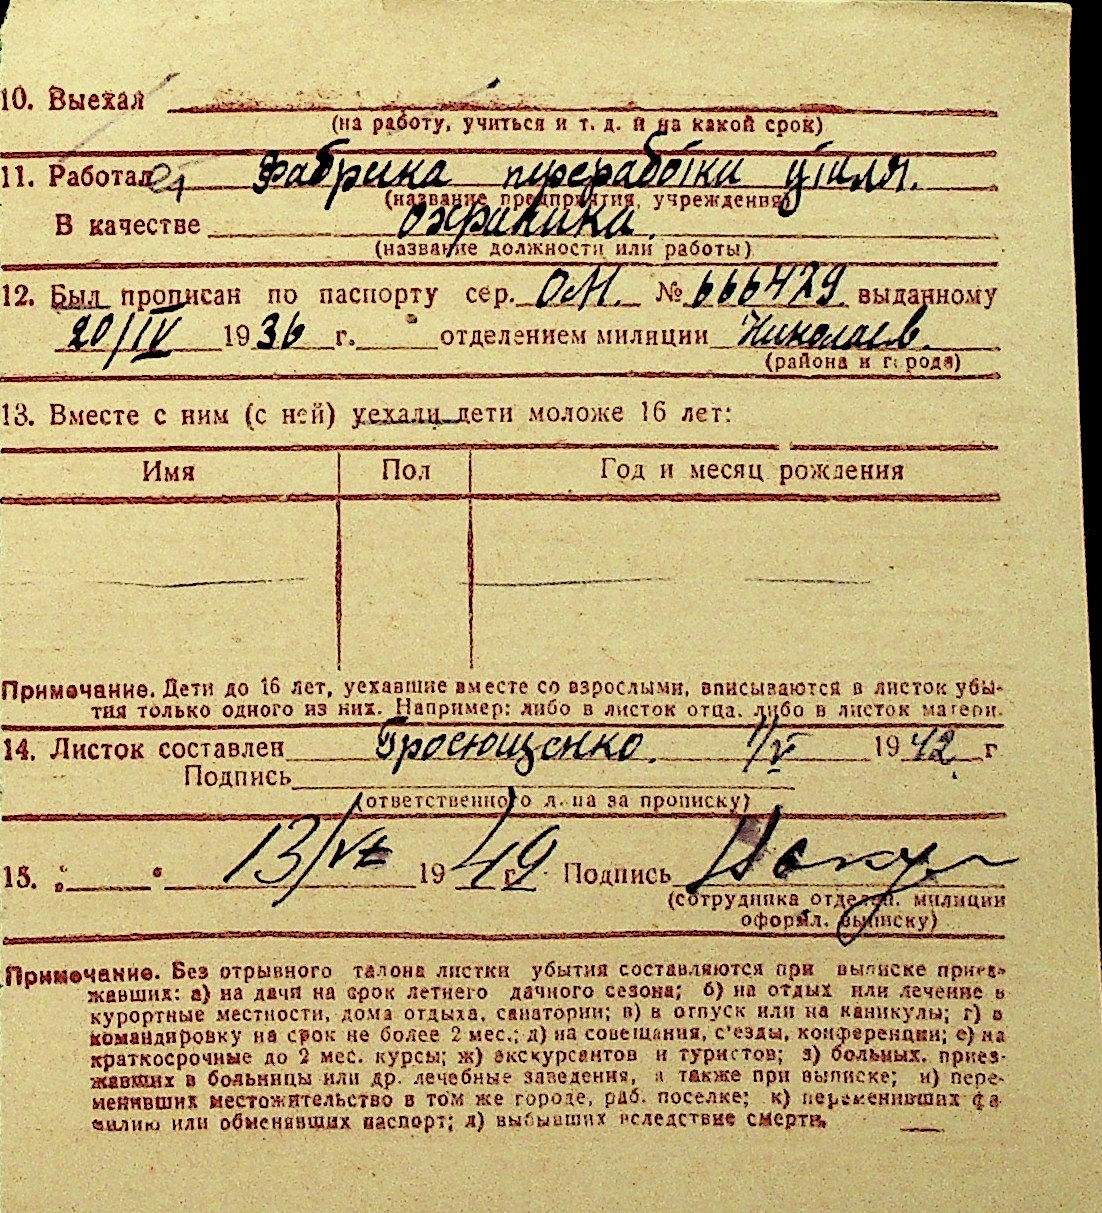 10. Выехал
(на работу, учиться и т. д. и на какой срок)
11. Работал Фабрика переработки утиля.
(название предприятия, учреждения)
В качестве охраника.
(название должности или работы)
12. Был прописан по паспорту сер. ОМ. № 666429 выданному
20/IV 1936 г. отделением милиции Николаев.
(района и города)
13. Вместе с ним (с ней) уехали дети моложе 16 лет:
Имя Пол Год и месяц рождения
Примечание. Дети до 16 лет, уехавшие вместе со взрослыми, вписываются в листок убы-
тия только одного из них. Например: либо в листок отца, либо в листок матери.
14. Листок составлен 1/V 1942 г
Подпись
(ответственного л-ца за прописку)
15. „ “ 13/VI 1949 г. Подпись
(сотрудника отделен. милиции
оформл. выписку)
Примечание. Без отрывного талона листки убытия составляются при выписке приез-
жавших: а) на дачи на срок летнего дачного сезона; б) на отдых или лечение в
курортные местности, дома отдыха, санатории; в) в отпуск или на каникулы; г) в
командировку на срок не более 2 мес.; д) на совещания, с'езды, конференции; е) на
краткосрочные до 2 мес. курсы; ж) экскурсантов и туристов; з) больных, приез-
жавших в больницы или др. лечебные заведения, а также при выписке; и) пере-
менивших местожительство в том же городе, раб. поселке; к) переменивших фа-
милию или обменявших паспорт; л) выбывших вследствие смерти.